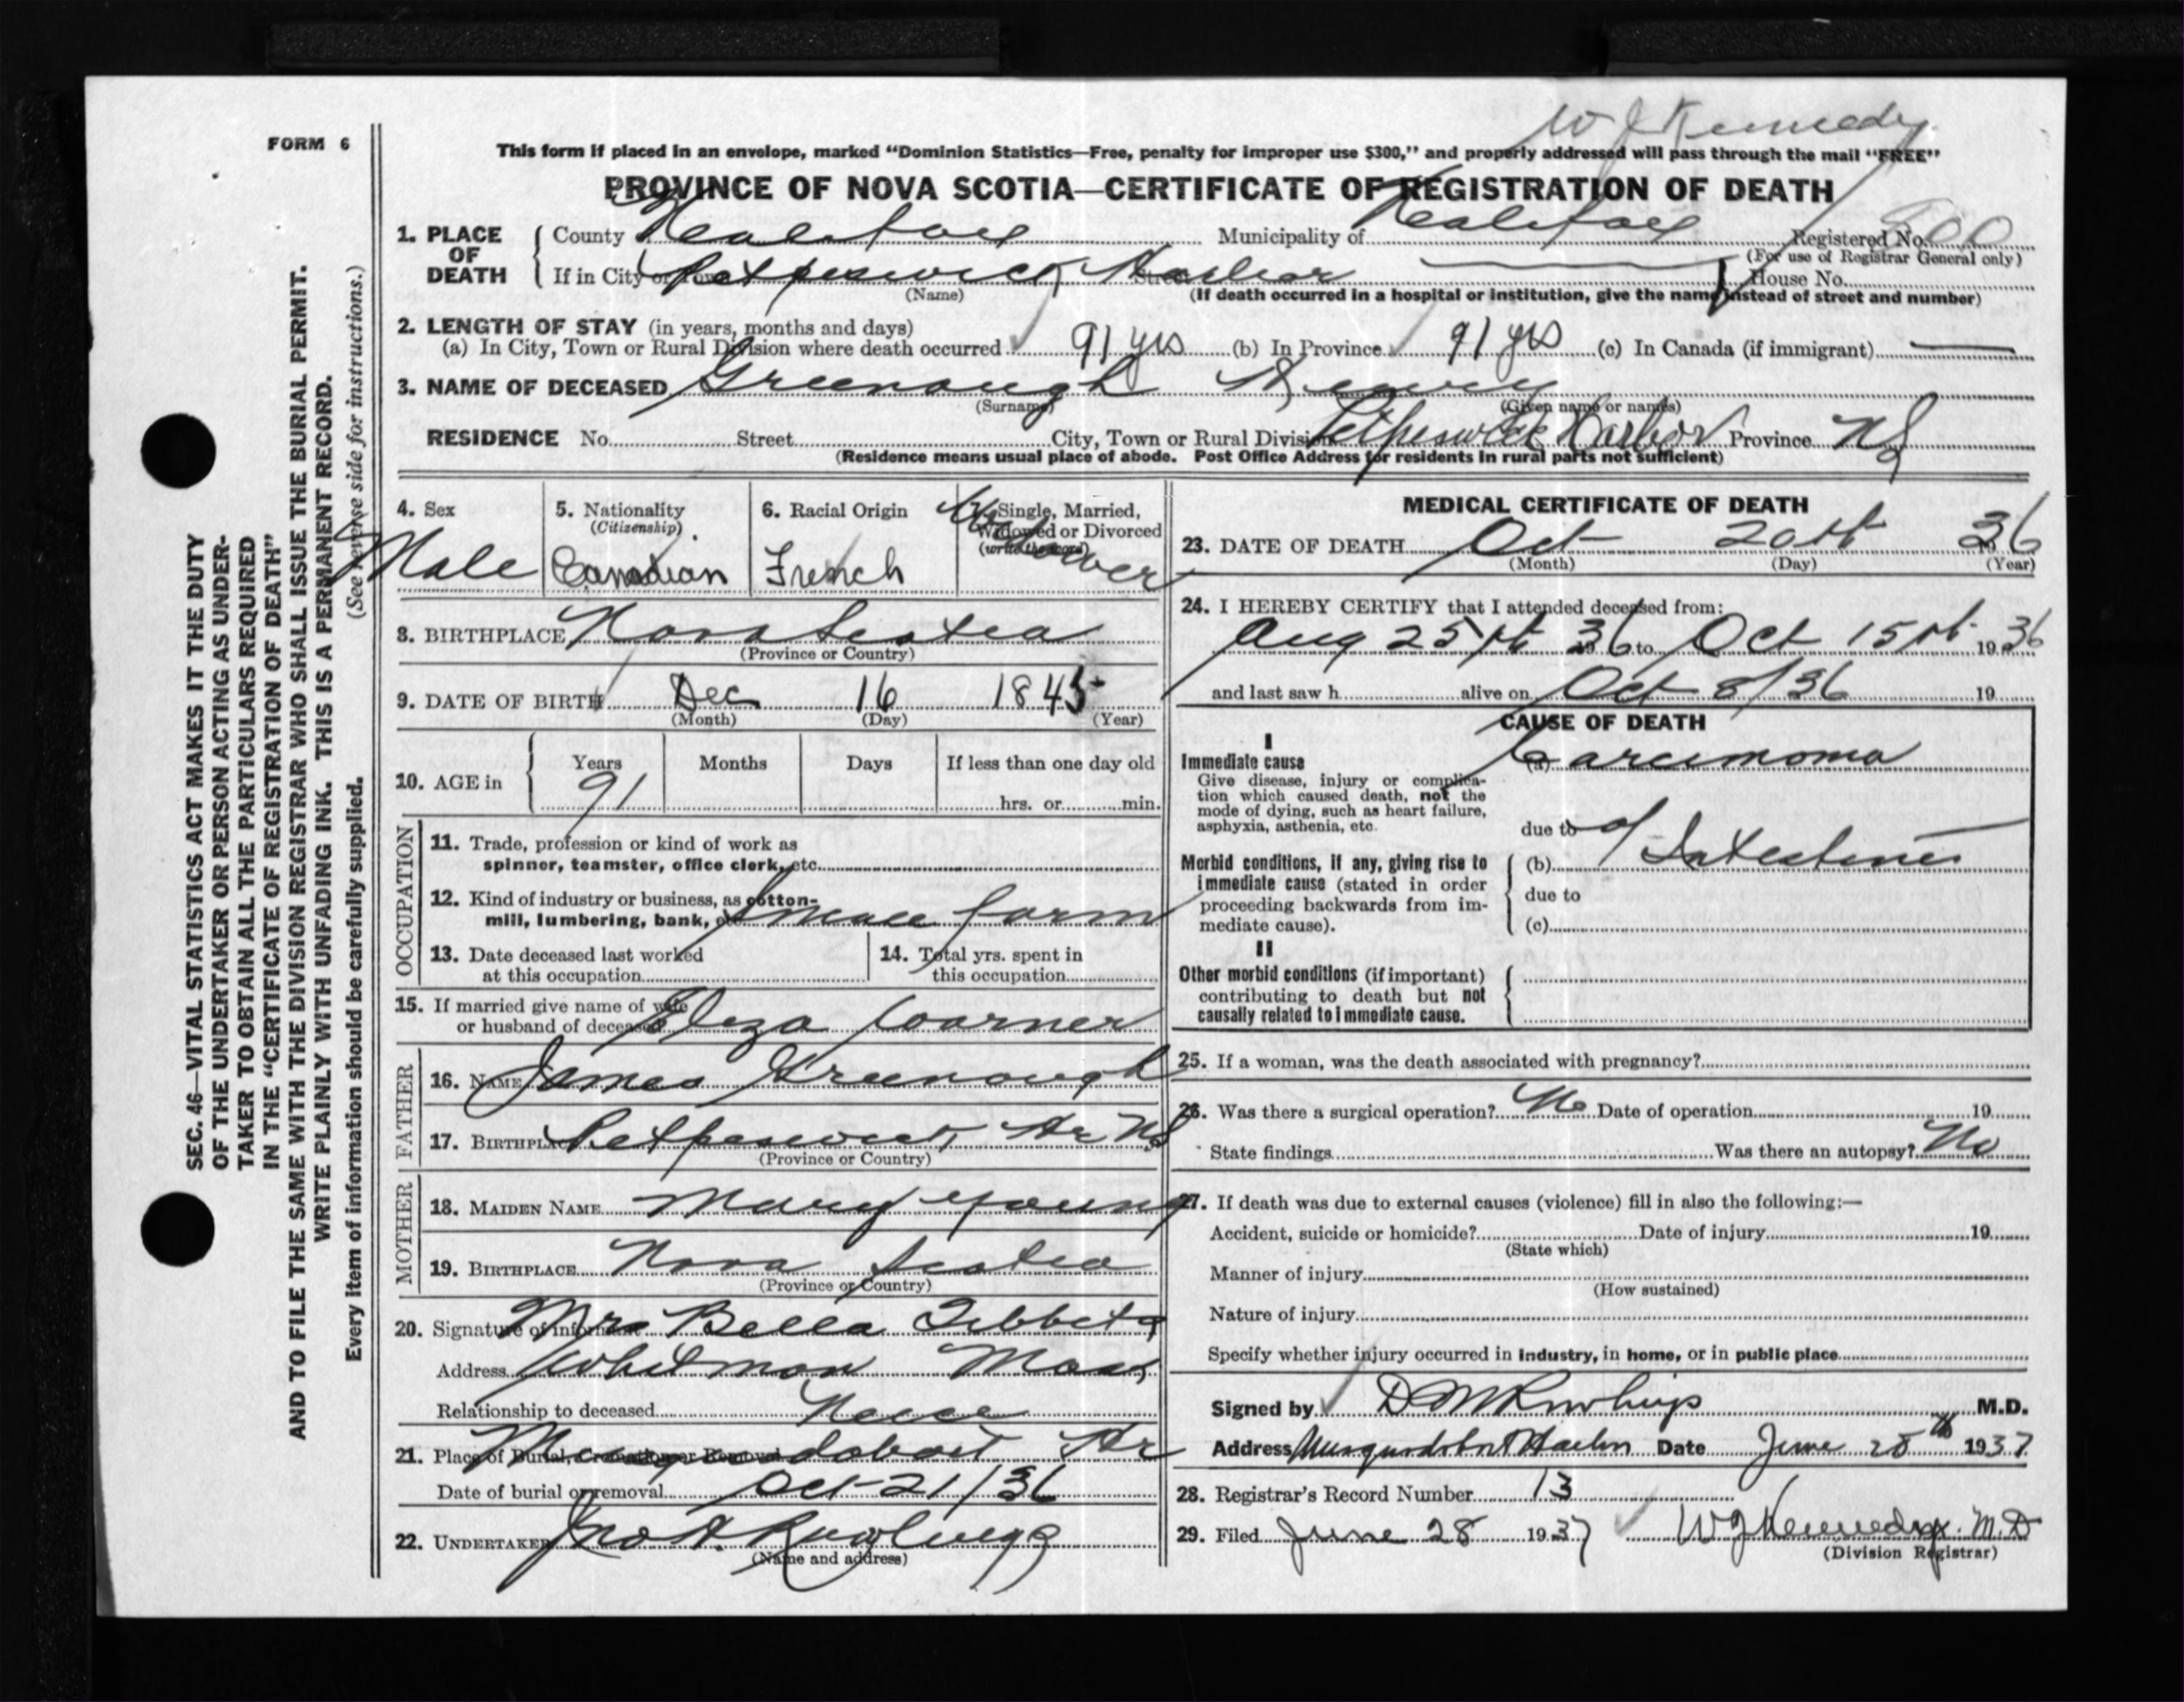 W J Kennedy
FORM 6
This form if placed in an envelope, marked "Dominion Statistics—Free, penalty for improper use $300," and properly addressed will pass through the mail "FREE"
PROVINCE OF NOVA SCOTIA—CERTIFICATE OF REGISTRATION OF DEATH
1. PLACE OF DEATH { County Halifax Municipality of Halifax Registered No. 800
(For use of Registrar General only)
If in City or Town Petpeswick Harbor Street House No.
(Name) (If death occurred in a hospital or institution, give the name instead of street and number)
2. LENGTH OF STAY (in years, months and days)
(a) In City, Town or Rural Division where death occurred 91 yrs (b) In Province 91 yrs (c) In Canada (if immigrant) —
3. NAME OF DECEASED Greenough Henry
(Surname) (Given name or names)
RESIDENCE No. Street City, Town or Rural Division Petpeswick Harbor Province NS
(Residence means usual place of abode. Post Office Address for residents in rural parts not sufficient)
4. Sex 5. Nationality 6. Racial Origin 7. Single, Married,
(Citizenship) Widowed or Divorced
(write the word)
Male Canadian French Widower
8. BIRTHPLACE Nova Scotia
(Province or Country)
9. DATE OF BIRTH Dec 16 1845
(Month) (Day) (Year)
10. AGE in { Years Months Days If less than one day old
91 hrs. or min.
OCCUPATION
11. Trade, profession or kind of work as
spinner, teamster, office clerk, etc.
12. Kind of industry or business, as cotton-
mill, lumbering, bank, etc. Small farm
13. Date deceased last worked
at this occupation
14. Total yrs. spent in
this occupation
15. If married give name of wife
or husband of deceased Eliza Warner
FATHER
16. NAME James Greenough
17. BIRTHPLACE Petpeswick Hr NS
(Province or Country)
MOTHER
18. MAIDEN NAME Mary Young
19. BIRTHPLACE Nova Scotia
(Province or Country)
20. Signature of informant Mrs Bella Tibbets
Address Whitman Mass
Relationship to deceased Neice
21. Place of Burial, Cremation or Removal Musquodoboit Hr
Date of burial or removal Oct 21/36
22. UNDERTAKER Jno A. Rawlings
(Name and address)
MEDICAL CERTIFICATE OF DEATH
23. DATE OF DEATH Oct 20th 1936
(Month) (Day) (Year)
24. I HEREBY CERTIFY that I attended deceased from:
Aug 25th 1936 to Oct 15th 1936
and last saw h alive on Oct 8/36 19
CAUSE OF DEATH
I
Immediate cause (a) Carcinoma
Give disease, injury or complica-
tion which caused death, not the
mode of dying, such as heart failure,
asphyxia, asthenia, etc.
due to of
Morbid conditions, if any, giving rise to
immediate cause (stated in order
proceeding backwards from im-
mediate cause).
(b) Intestines
due to
(c)
II
Other morbid conditions (if important)
contributing to death but not
causally related to immediate cause.
25. If a woman, was the death associated with pregnancy?
26. Was there a surgical operation? No Date of operation 19
State findings Was there an autopsy? No
27. If death was due to external causes (violence) fill in also the following:—
Accident, suicide or homicide? Date of injury 19
(State which)
Manner of injury
(How sustained)
Nature of injury
Specify whether injury occurred in industry, in home, or in public place
Signed by D M Rawlings M.D.
Address Musquodoboit Harbor Date June 28th 1937
28. Registrar's Record Number 13
29. Filed June 28 1937 W J Kennedy M.D
(Division Registrar)
SEC. 46—VITAL STATISTICS ACT MAKES IT THE DUTY
OF THE UNDERTAKER OR PERSON ACTING AS UNDER-
TAKER TO OBTAIN ALL THE PARTICULARS REQUIRED
IN THE "CERTIFICATE OF REGISTRATION OF DEATH"
AND TO FILE THE SAME WITH THE DIVISION REGISTRAR WHO SHALL ISSUE THE BURIAL PERMIT.
WRITE PLAINLY WITH UNFADING INK. THIS IS A PERMANENT RECORD.
Every item of information should be carefully supplied. (See reverse side for instructions.)